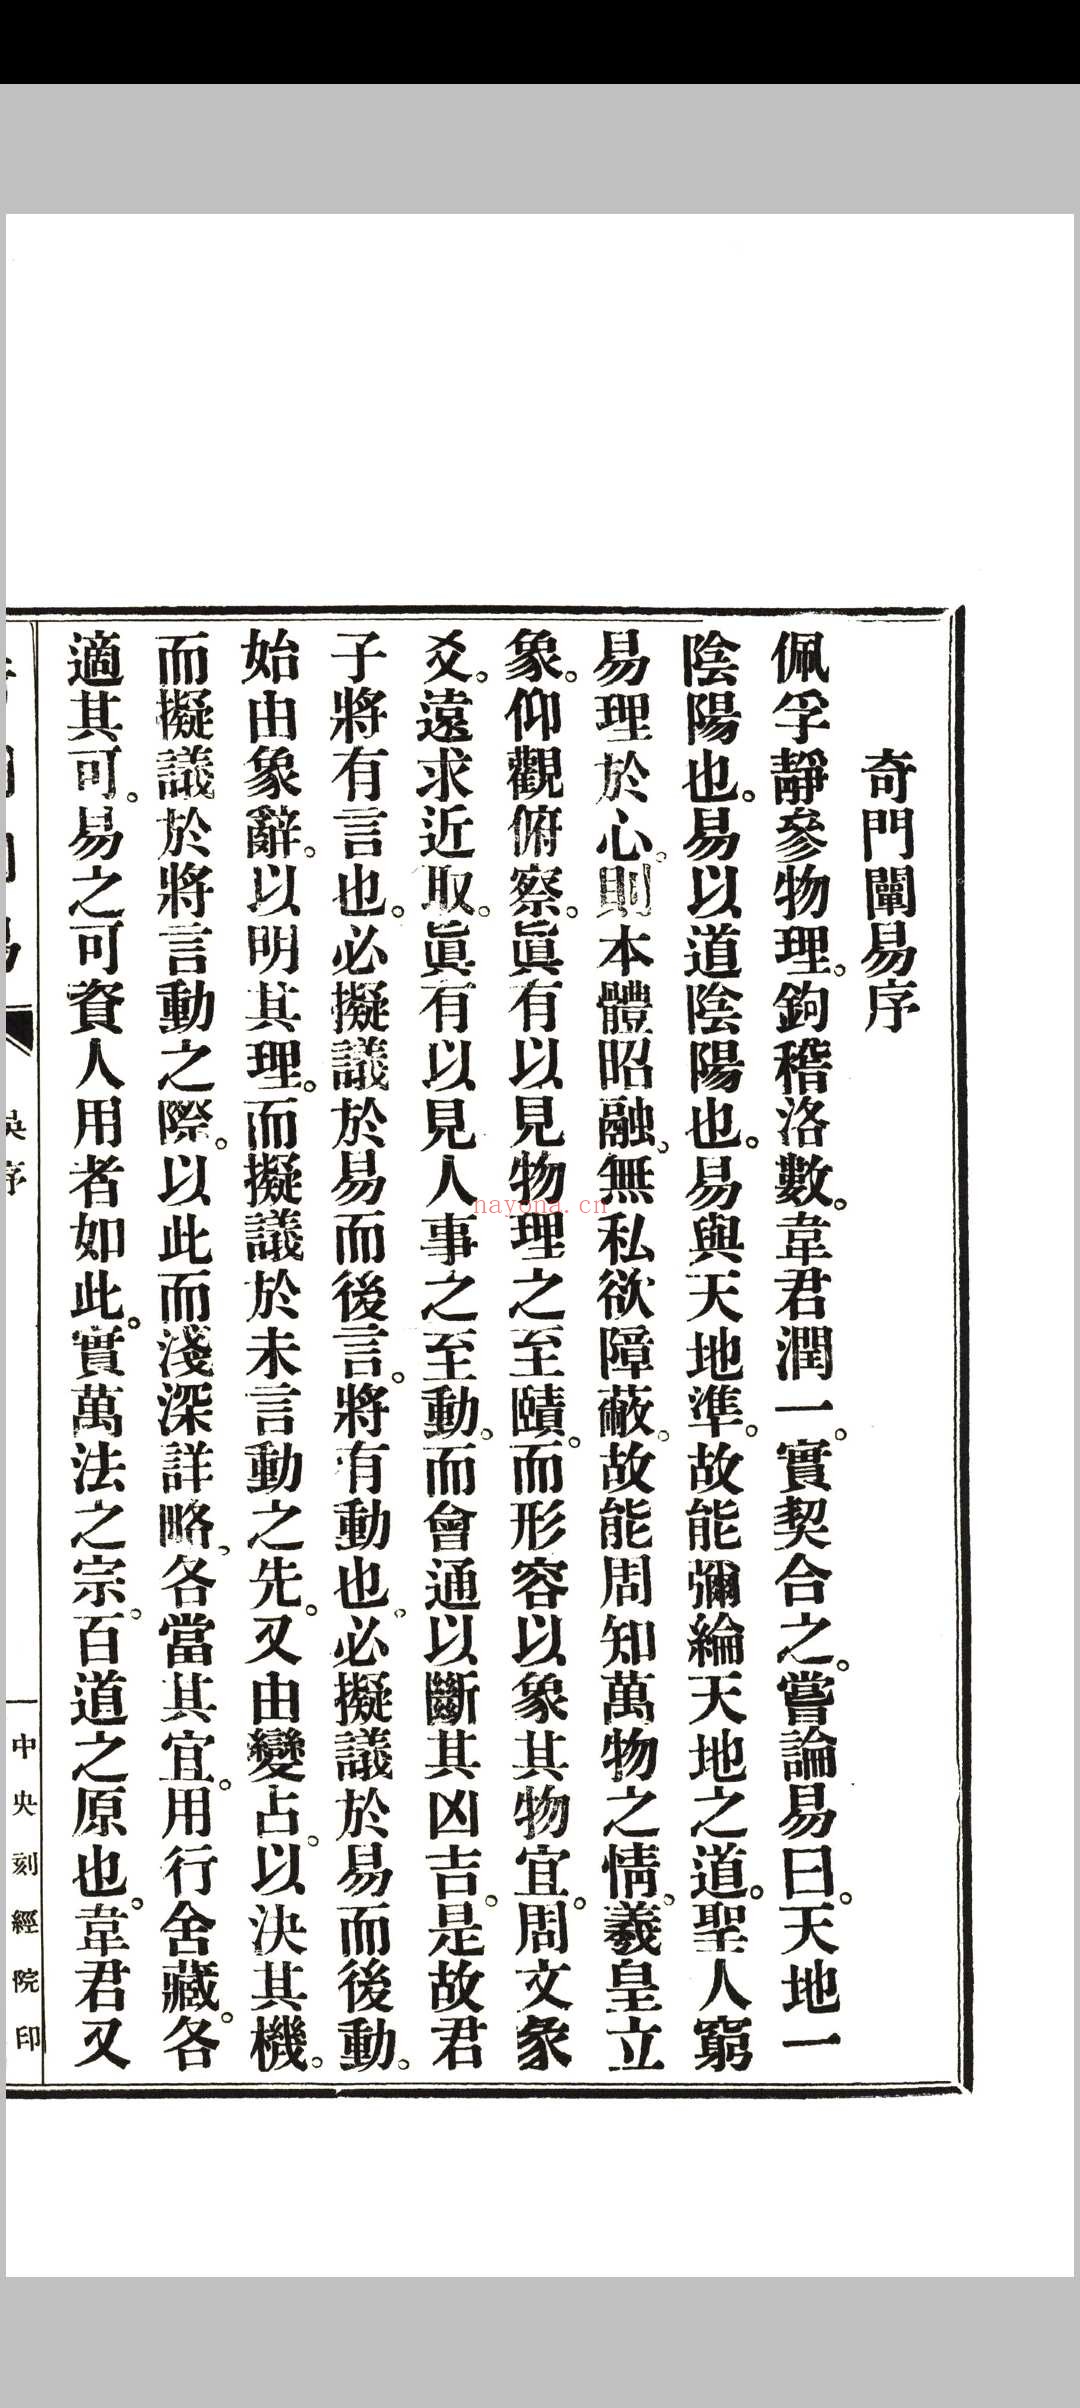 奇門闡易序
佩孚靜參物理。鉤稽洛數。韋君潤一。實契合之。嘗論易曰。天地一
陰陽也。易以道陰陽也。易與天地準。故能彌綸天地之道。聖人窮
易理於心。則本體昭融。無私欲障蔽。故能周知萬物之情。羲皇立
象。仰觀俯察。眞有以見物理之至賾。而形容以象其物宜。周文彖
爻。遠求近取。眞有以見人事之至動。而會通以斷其凶吉。是故君
子將有言也。必擬議於易而後言。將有動也。必擬議於易而後動。
始由象辭。以明其理。而擬議於未言動之先。又由變占。以決其機。
而擬議於將言動之際。以此而淺深詳略。各當其宜。用行舍藏。各
適其可。易之可資人用者如此。實萬法之宗。百道之原也。韋君又
吳序
一
中央刻經院印
nayona.cn